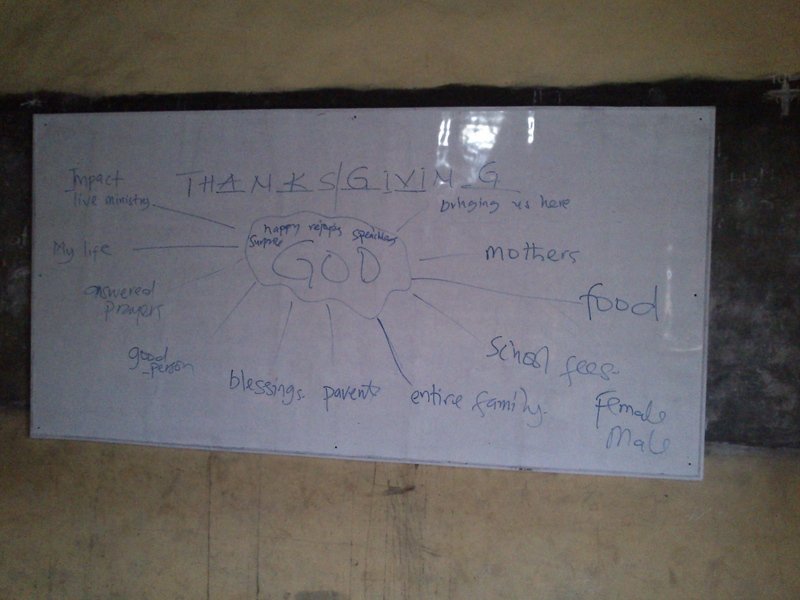 THANKS/GIVING
Impact
live ministry
bringing us here
happy
Surprise
GOD
My life
mothers
answered
prayers
food
good
person
school fees.
blessings.
parents
entire family.
Female
Male